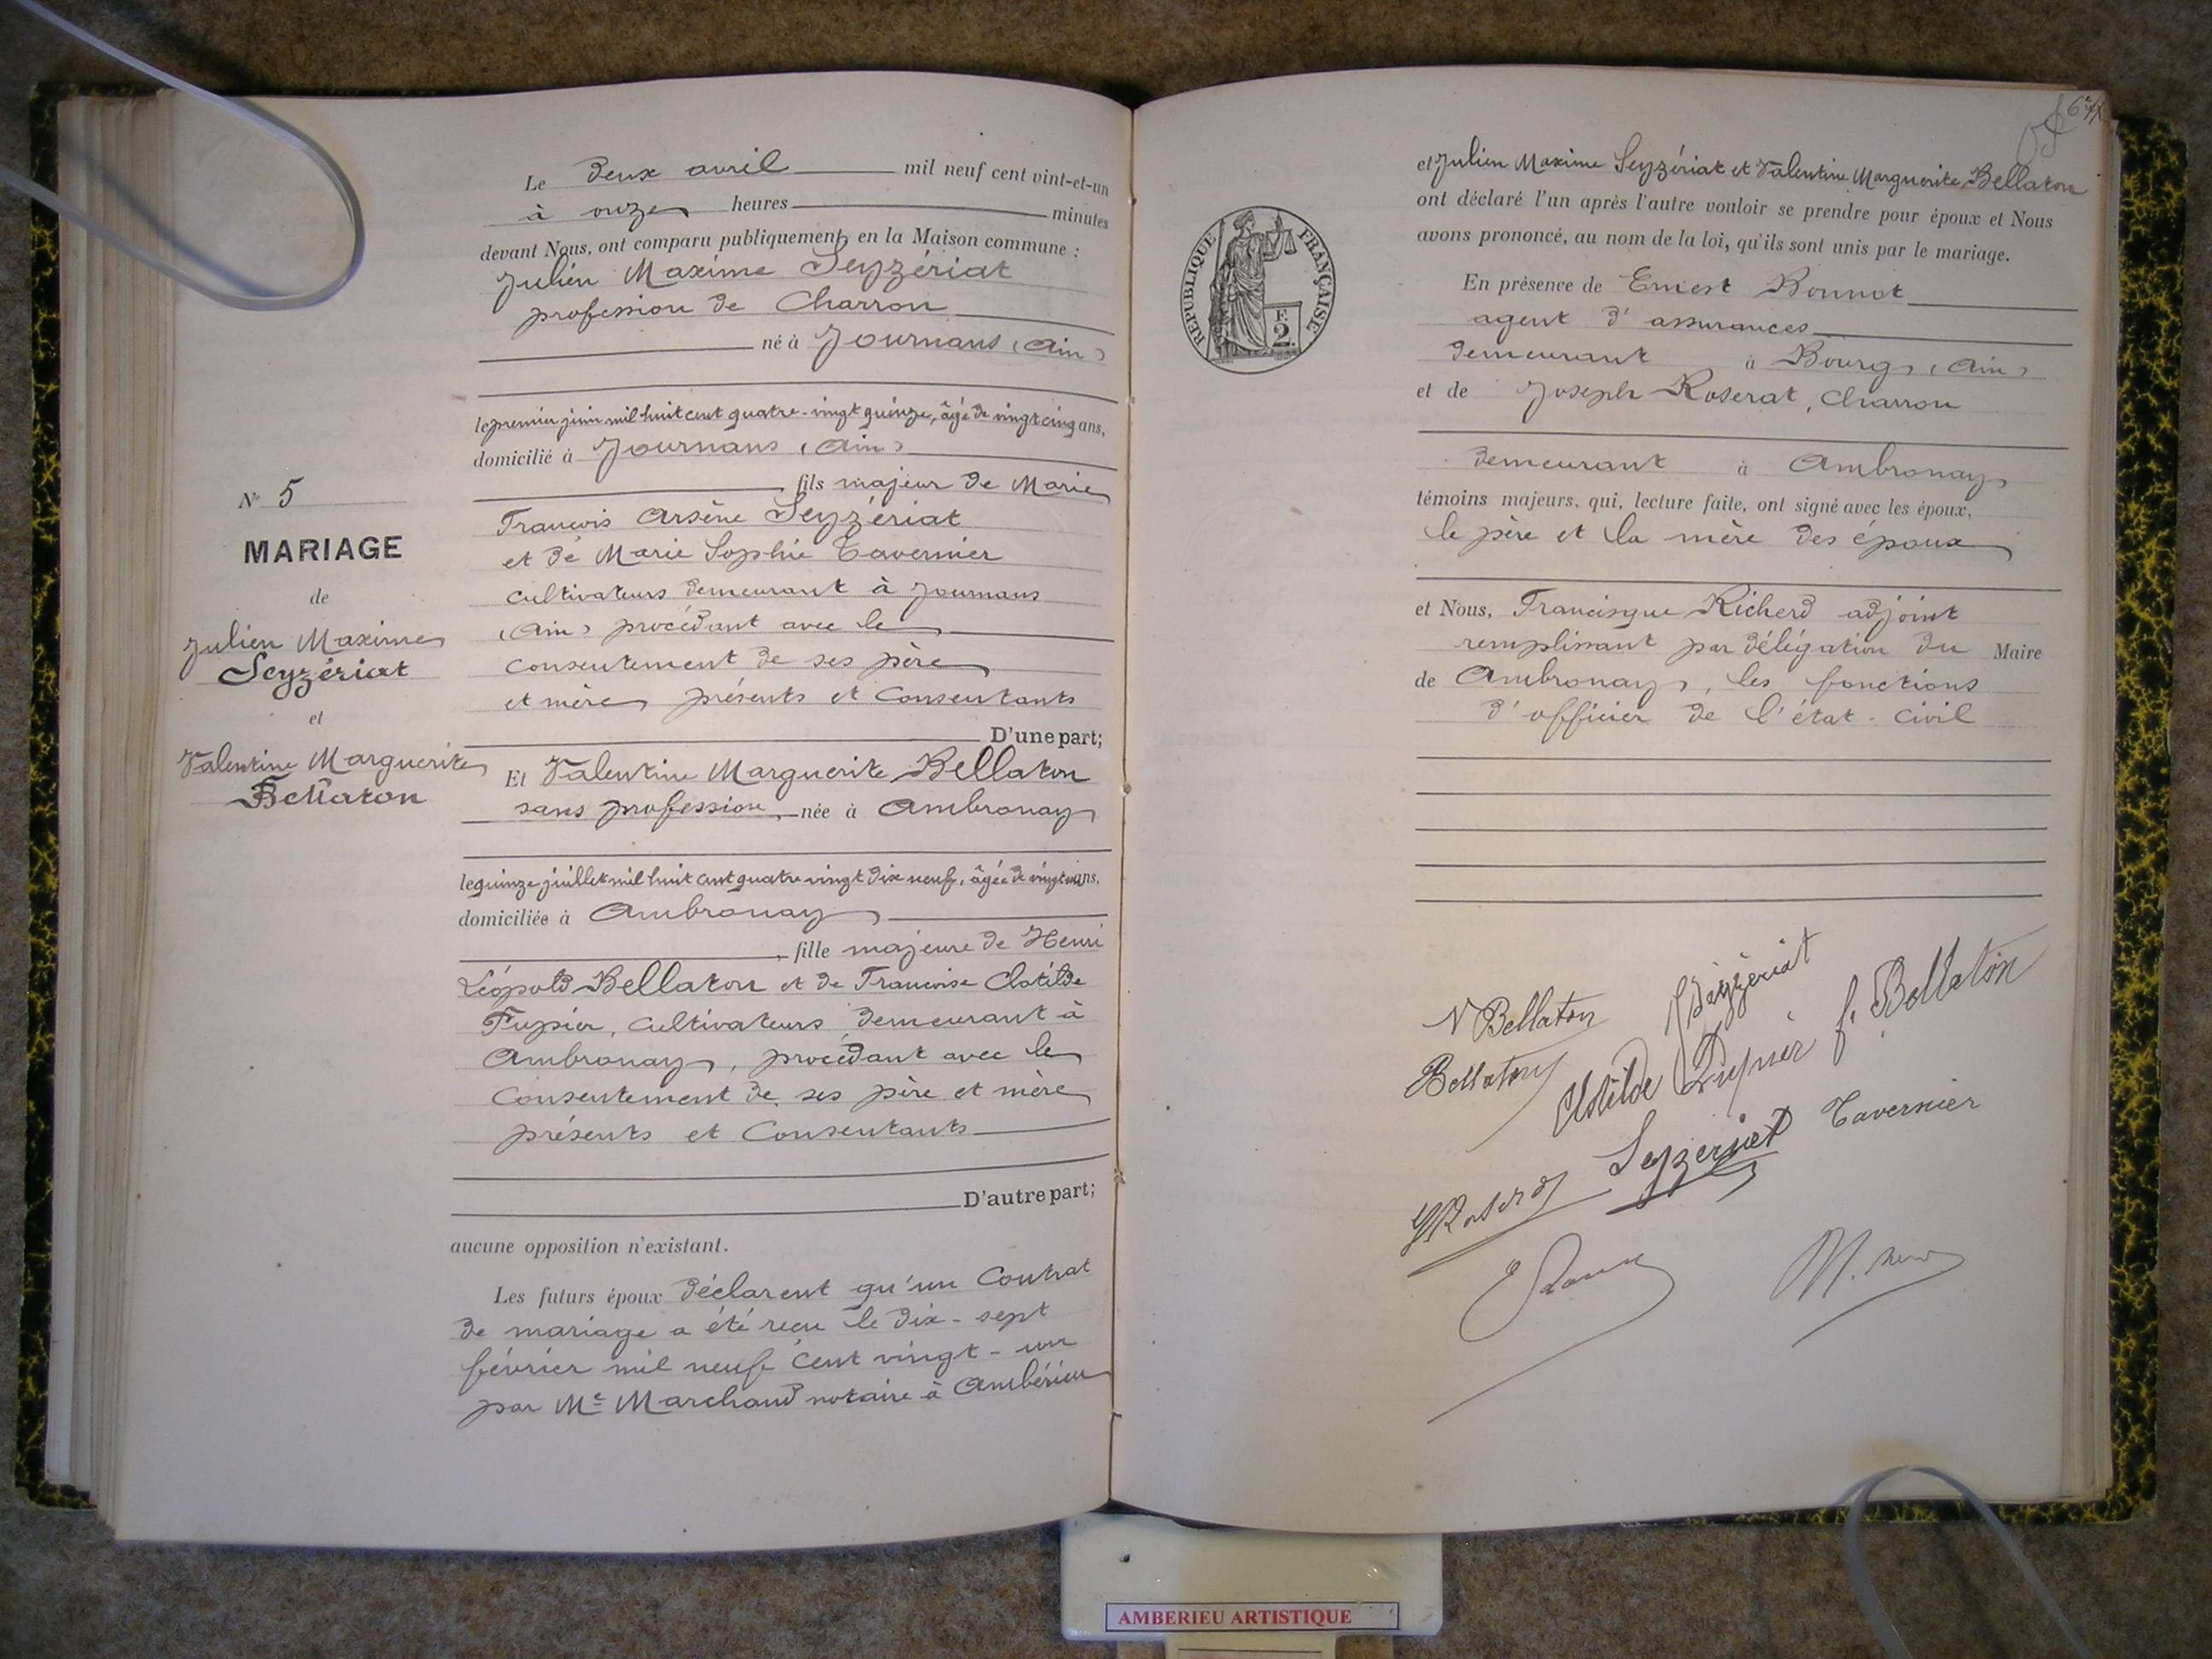 Le deux avril mil neuf cent vint-et-un
à onze heures minutes
devant Nous, ont comparu publiquement en la Maison commune :
Julien Maxime Seyzériat
profession de Charron
né à Journans (Ain)
le premier juin mil huit cent quatre-vingt quinze, âgé de vingt cinq ans,
domicilié à Journans (Ain)
fils majeur de Marie
François Arsène Seyzériat
et de Marie Sophie Tavernier
cultivateurs demeurant à Journans
(Ain) procédant avec le
consentement de ses père
et mère présents et consentants
D'une part;
N° 5
MARIAGE
de
Julien Maxime
Seyzériat
et
Valentine Marguerite
Bellaton
Et Valentine Marguerite Bellaton
sans profession, née à Ambronay
le quinze juillet mil huit cent quatre vingt dix neuf, âgée de vingt un ans,
domiciliée à Ambronay
fille majeure de Henri
Léopold Bellaton et de Françoise Clotilde
Fupier, cultivateurs demeurant à
Ambronay, procédant avec le
consentement de ses père et mère
présents et consentants
D'autre part;
aucune opposition n'existant.
Les futurs époux déclarent qu'un contrat
de mariage a été reçu le dix-sept
février mil neuf cent vingt-un
par Me Marchand notaire à Ambérieu
6
RÉPUBLIQUE FRANÇAISE
F.
2.
et Julien Maxime Seyzériat et Valentine Marguerite Bellaton
ont déclaré l'un après l'autre vouloir se prendre pour époux et Nous
avons prononcé, au nom de la loi, qu'ils sont unis par le mariage.
En présence de Ernest Bonnot
agent d'assurances
demeurant à Bourg (Ain)
et de Joseph Roserat, Charron
demeurant à Ambronay
témoins majeurs, qui, lecture faite, ont signé avec les époux,
le père et la mère des époux
et Nous, Francisque Richerd adjoint
remplissant par délégation du Maire
de Ambronay, les fonctions
d'officier de l'état-civil
V Bellaton Seyzériat
Bellaton Clotilde f. Bellaton
Seyzeriat Tavernier
AMBERIEU ARTISTIQUE